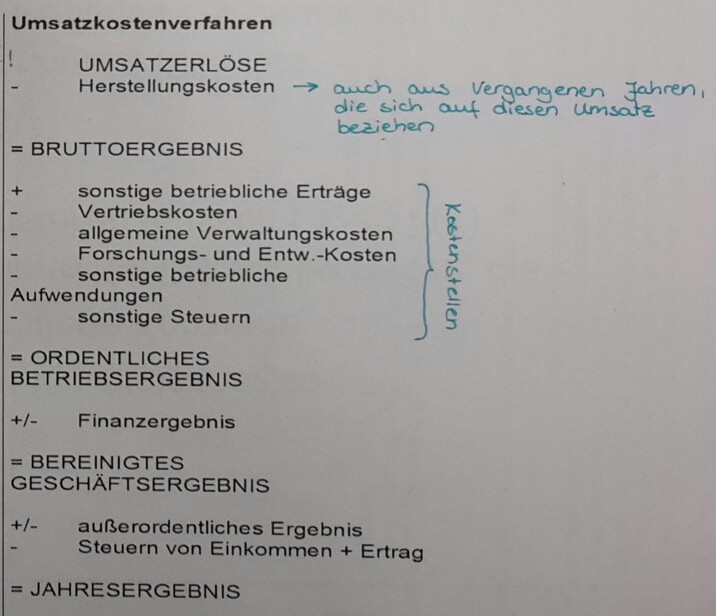 Umsatzkostenverfahren
! UMSATZERLÖSE
- Herstellungskosten → auch aus Vergangenen Jahren,
die sich auf diesen Umsatz
beziehen
= BRUTTOERGEBNIS
+ sonstige betriebliche Erträge
- Vertriebskosten
- allgemeine Verwaltungskosten
- Forschungs- und Entw.-Kosten
- sonstige betriebliche
Aufwendungen
- sonstige Steuern
Kostenstellen
= ORDENTLICHES
BETRIEBSERGEBNIS
+/- Finanzergebnis
= BEREINIGTES
GESCHÄFTSERGEBNIS
+/- außerordentliches Ergebnis
- Steuern von Einkommen + Ertrag
= JAHRESERGEBNIS